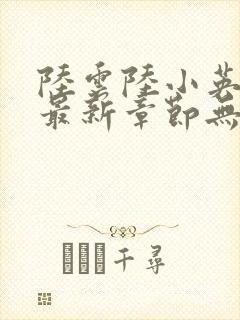 陸雲陸小英
最新章節無
千尋